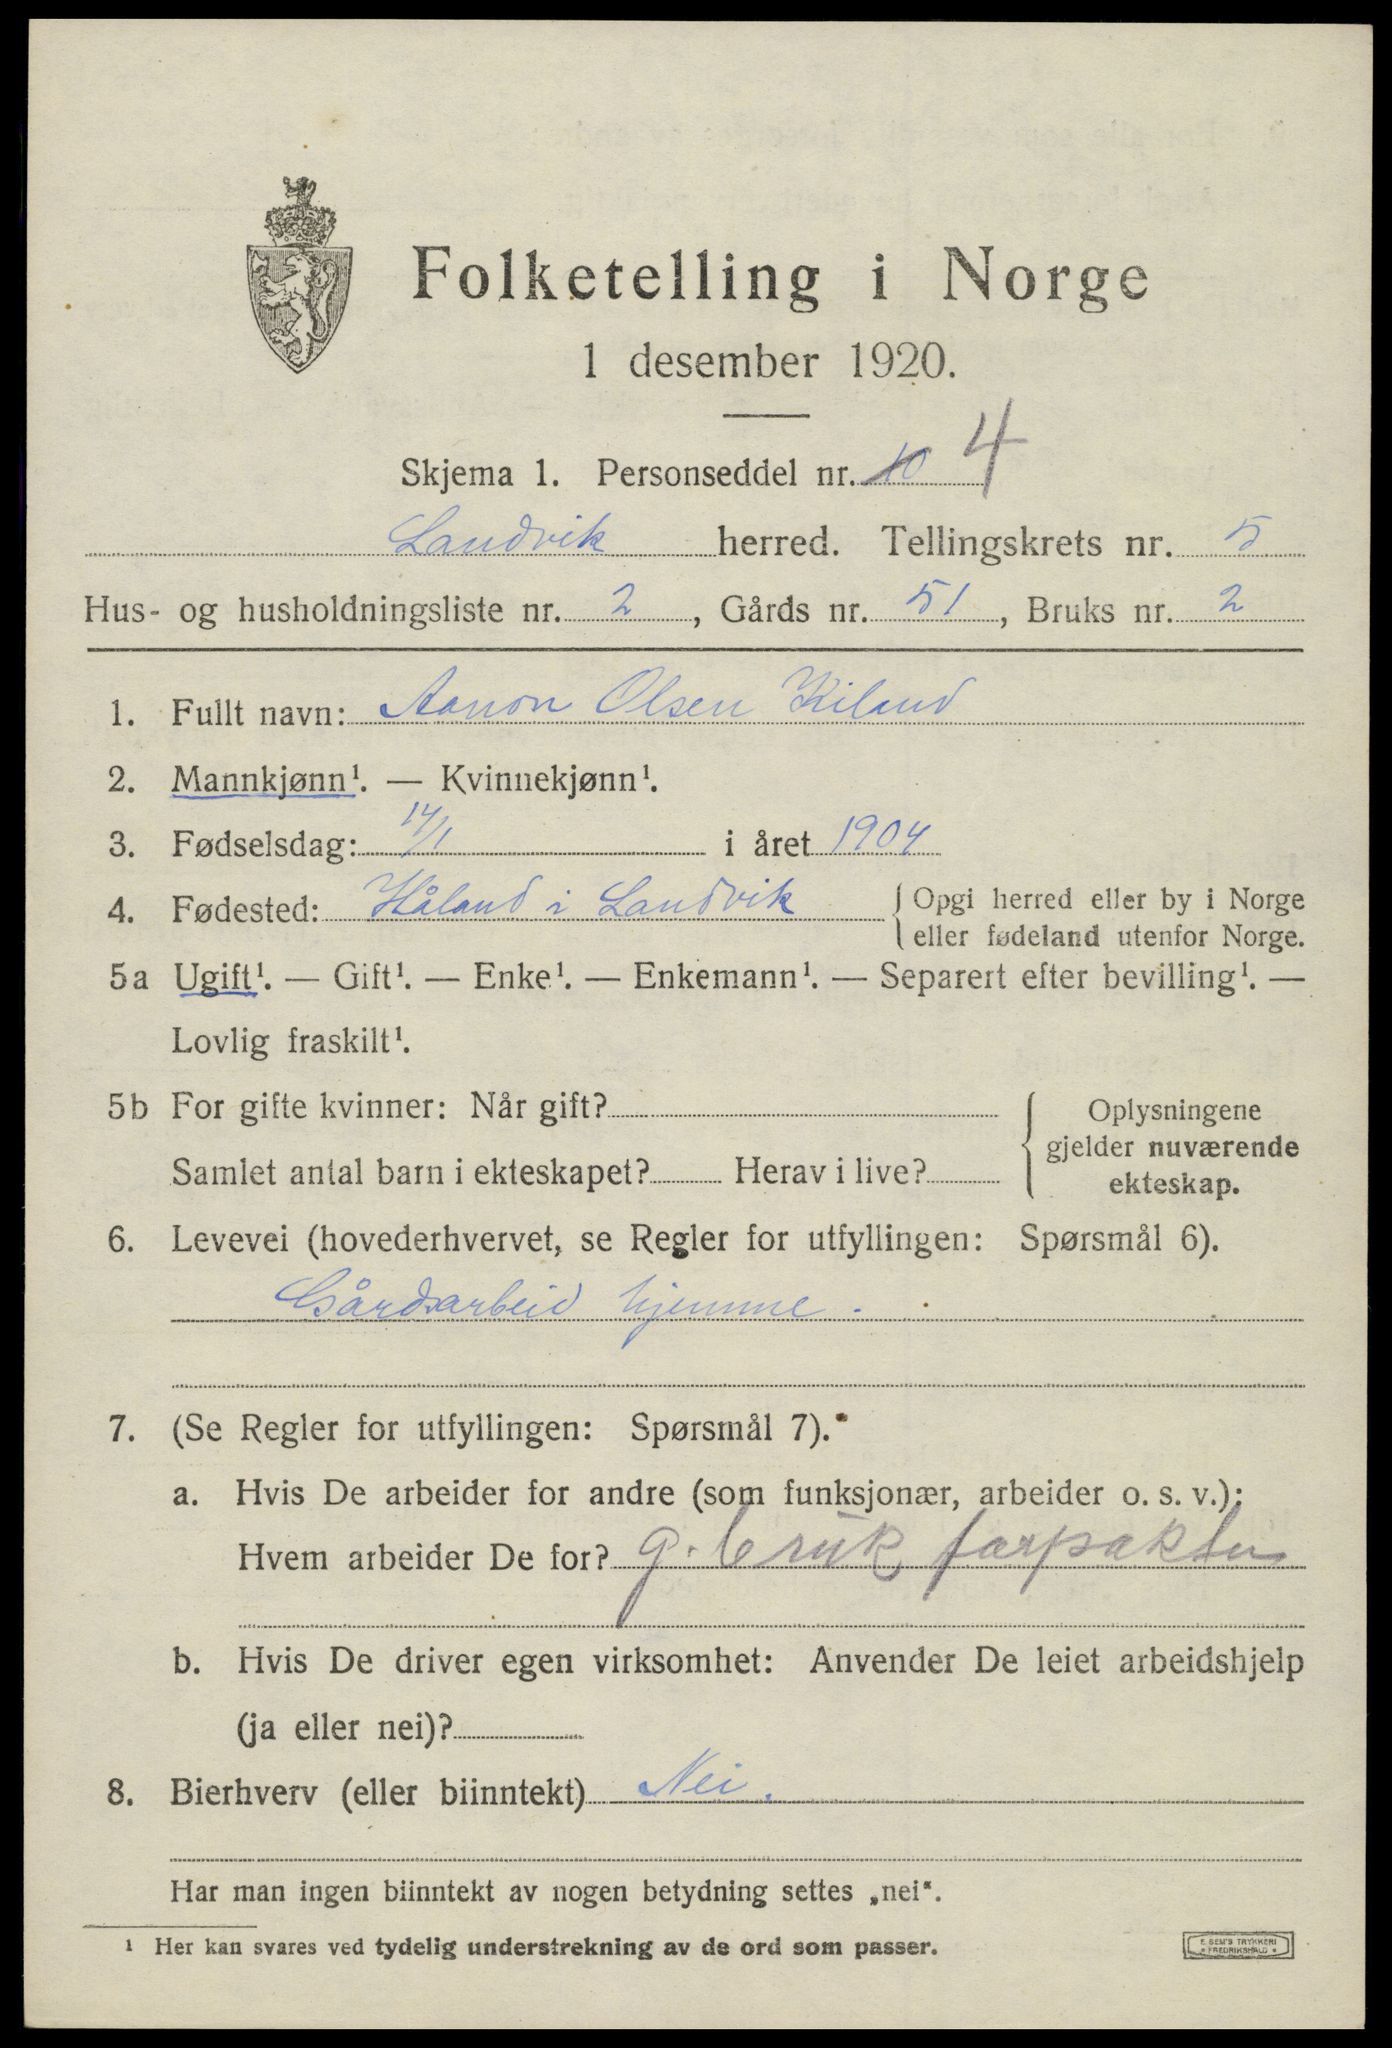 Folketelling i Norge
1 desember 1920.
Skjema 1. Personseddel nr. 10 4
Landvik herred. Tellingskrets nr. 5
Hus- og husholdningsliste nr. 2, Gårds nr. 51, Bruks nr. 2
1. Fullt navn: Aanon Olsen Kiland
2. Mannkjønn¹. — Kvinnekjønn¹.
3. Fødselsdag: 14/1 i året 1904
4. Fødested: Håland i Landvik { Opgi herred eller by i Norge
eller fødeland utenfor Norge.
5a Ugift¹. — Gift¹. — Enke¹. — Enkemann¹. — Separert efter bevilling¹. —
Lovlig fraskilt¹.
5b For gifte kvinner: Når gift?
Samlet antal barn i ekteskapet? Herav i live?
{ Oplysningene
gjelder nuværende
ekteskap.
6. Levevei (hovederhvervet, se Regler for utfyllingen: Spørsmål 6).
Gårdsarbeid hjemme.
7. (Se Regler for utfyllingen: Spørsmål 7).
a. Hvis De arbeider for andre (som funksjonær, arbeider o. s. v.):
Hvem arbeider De for? g. bruk forpakter
b. Hvis De driver egen virksomhet: Anvender De leiet arbeidshjelp
(ja eller nei)?
8. Bierhverv (eller biinntekt) Nei.
Har man ingen biinntekt av nogen betydning settes „nei“.
¹ Her kan svares ved tydelig understrekning av de ord som passer.
E. SEM'S TRYKKERI
FREDRIKSHALD